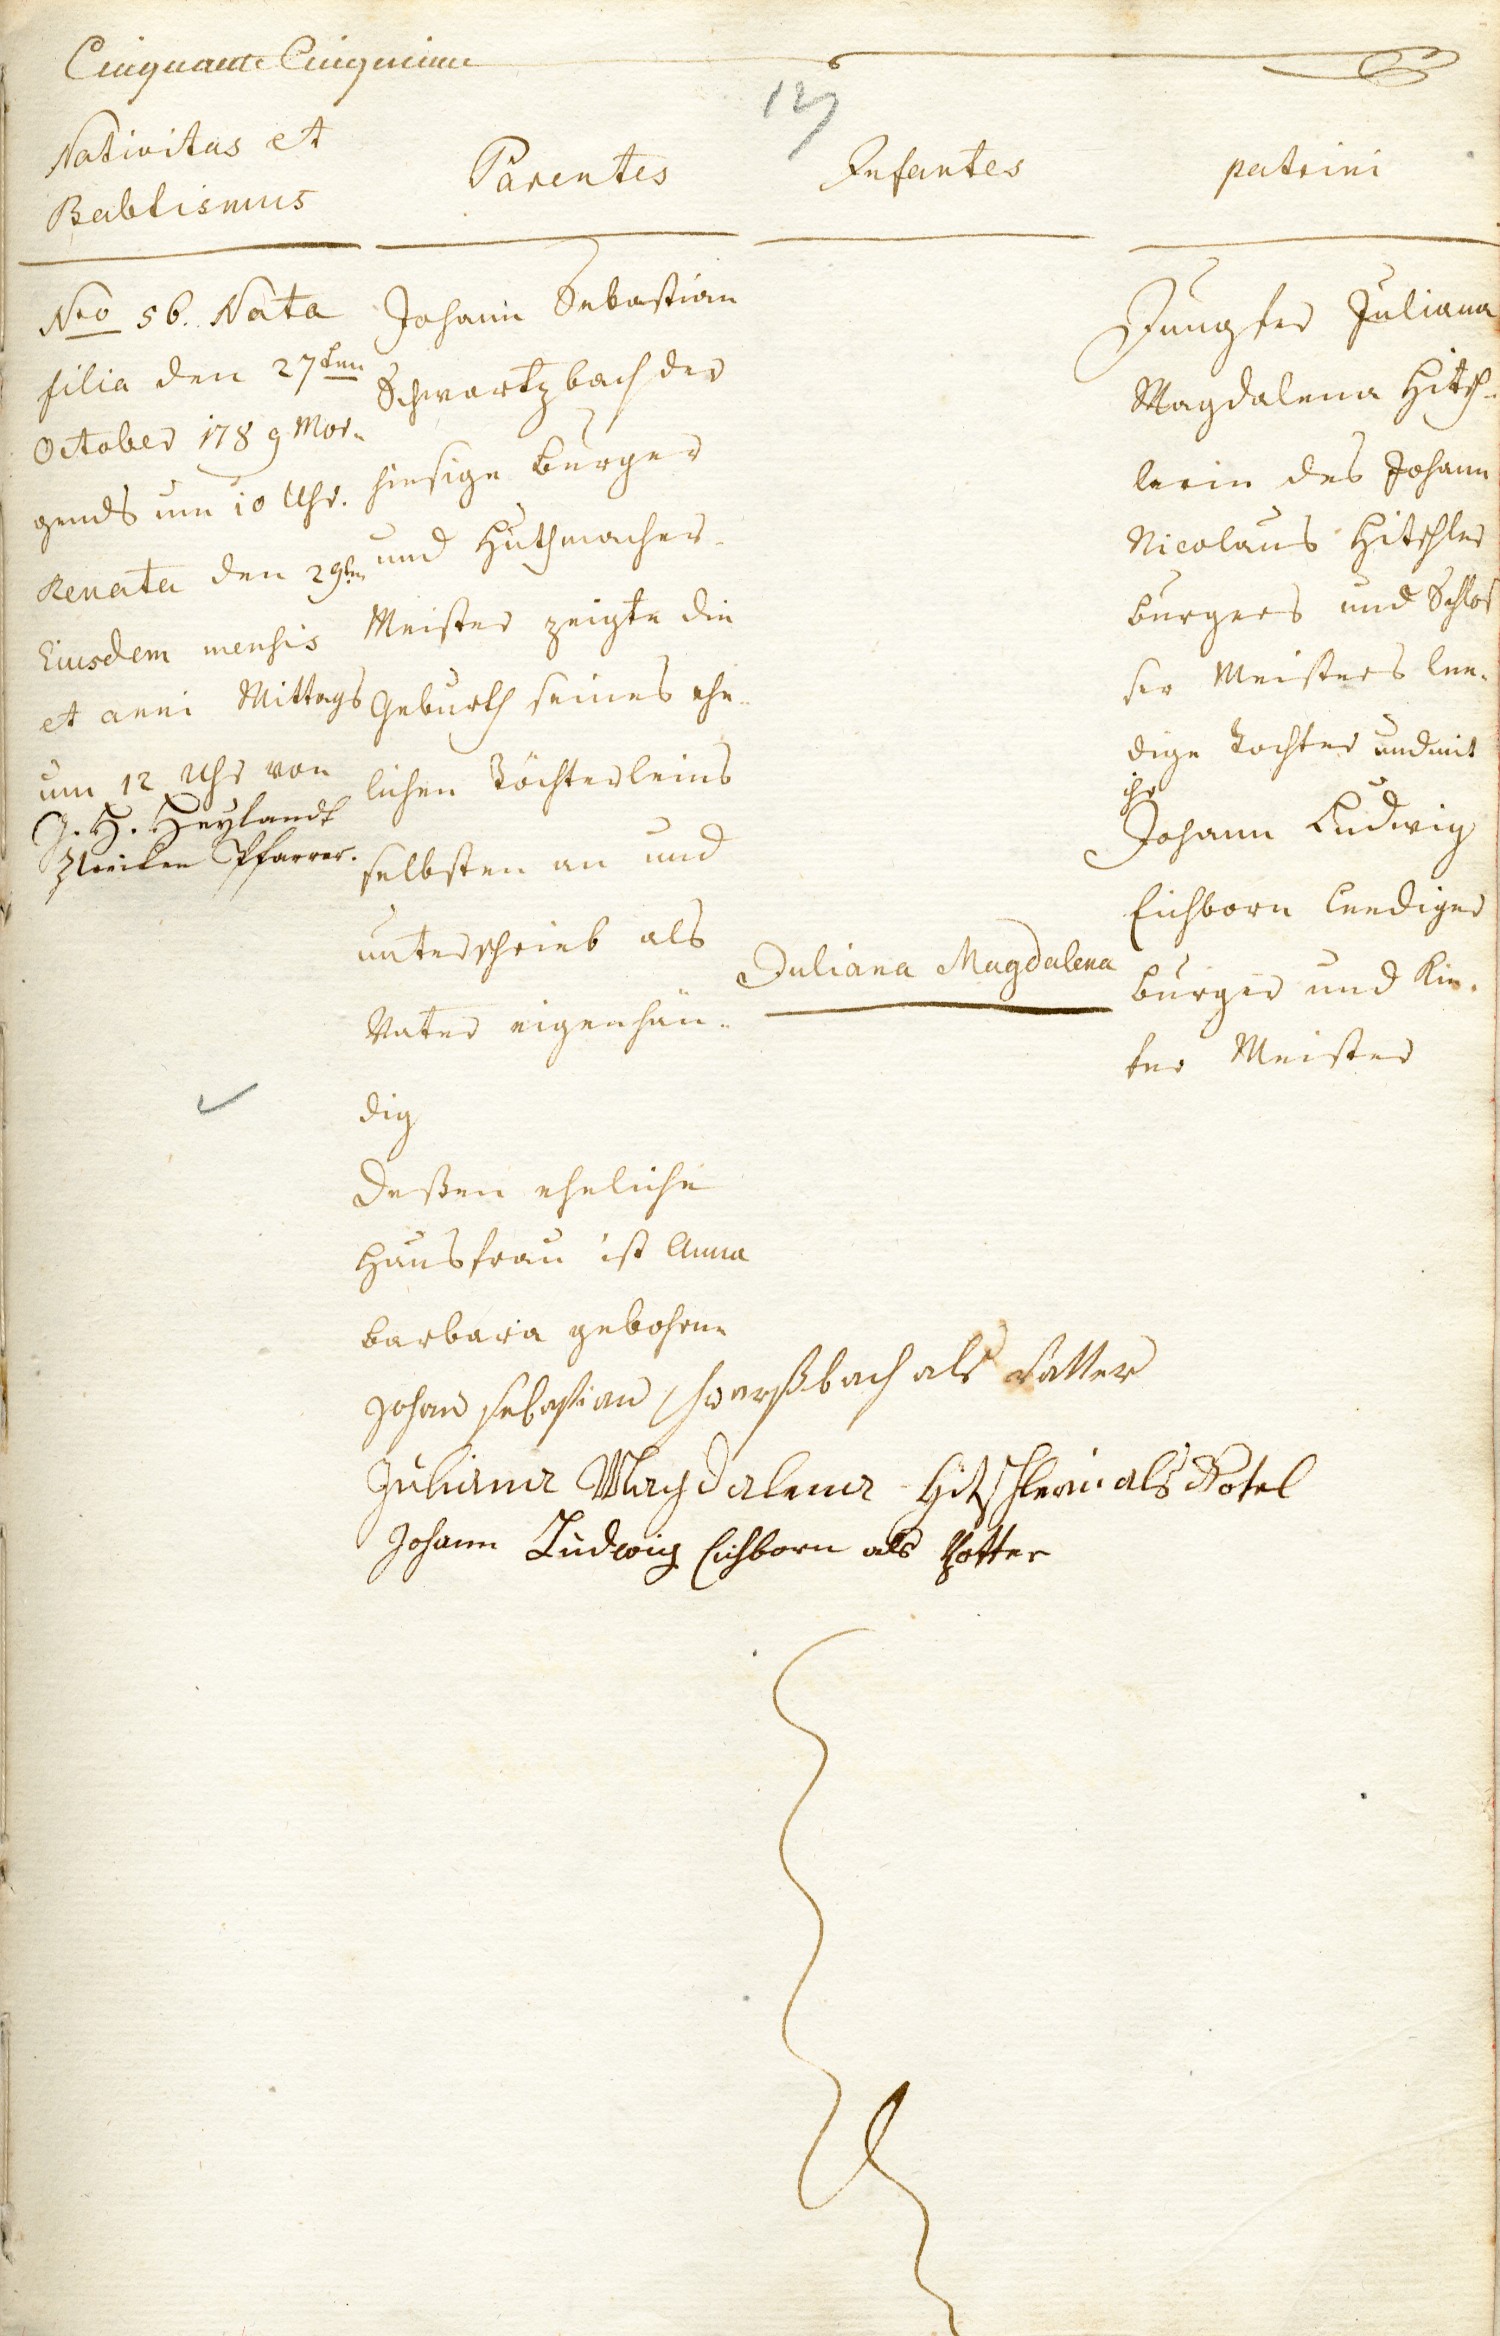 Cinquante Cinquieme
127
Nativitas et
Babtismus
Parentes
Infantes
patrini
Nro 56. Nata
filia den 27ten
October 1789 Mor-
gends um 10 Uhr.
Renata den 29ten
Eiusdem mensis
et anni Mittags
um 12 Uhr von
J. H. Heylandt
Zweiten Pfarrer.
Johann Sebastian
Schwartzbach der
hiesige Burger
und Huthmacher-
Meister zeigte die
Geburth seines ehe-
lichen Töchterleins
selbsten an und
unterschrieb als
Vater eigenhän-
dig
Deßen eheliche
Hausfrau ist Anna
Barbara gebohrne
Juliana Magdalena
Jungfer Juliana
Magdalena Hitsch-
lerin des Johann
Nicolaus Hitschler
burgers und Schlos
ser Meisters lee-
dige Tochter und mit
ihr
Johann Ludwig
Eichborn leediger
burger und
Meister
Johan sebastian schwarßbach als vatter
Juliana Magdalena Hitschlerin als Gotel
Johann Ludwig Eichborn als Pfetter